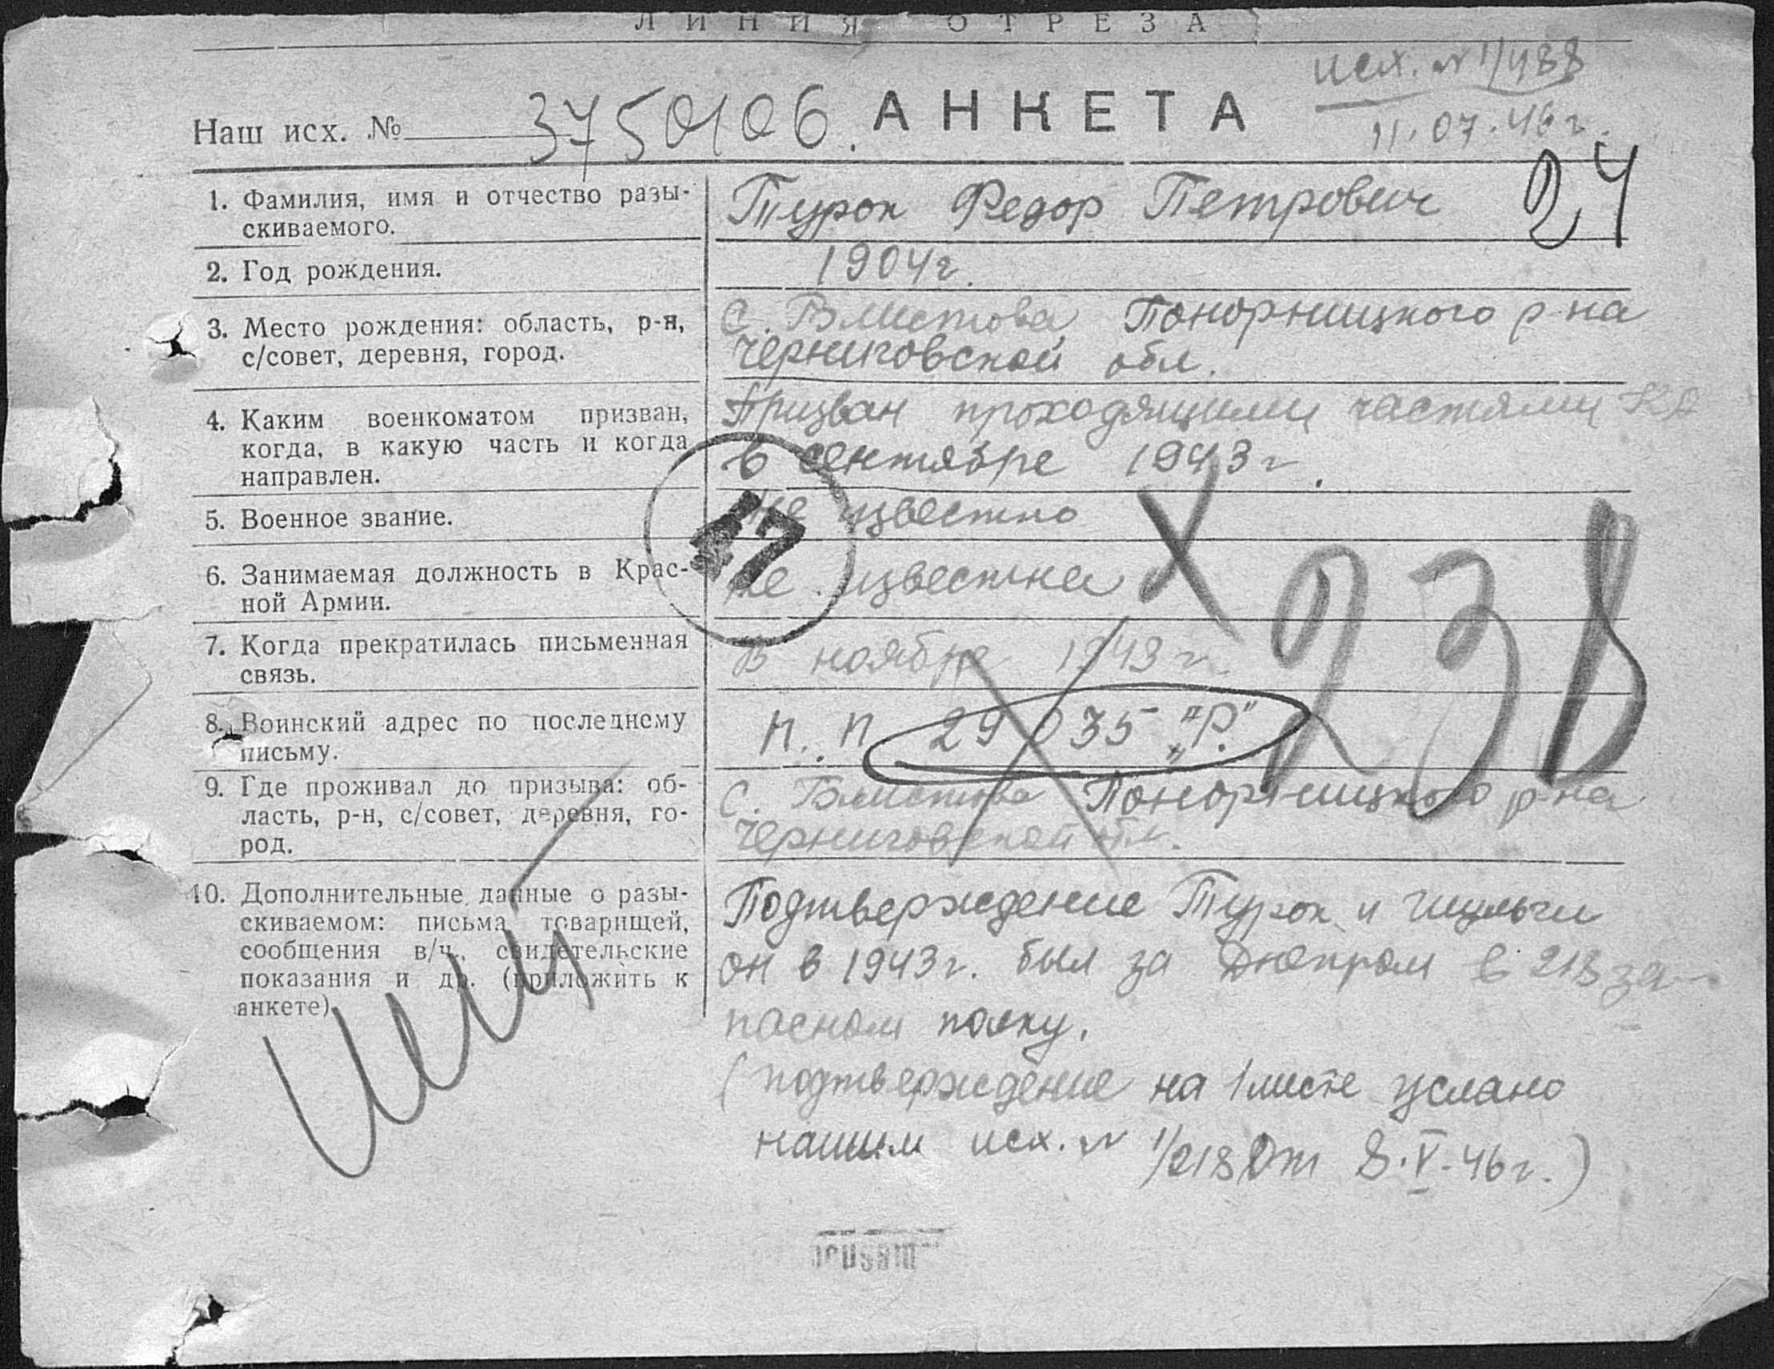 ЛИНИЯ ОТРЕЗА
исх. № 1/488
Наш исх. № 3750106. АНКЕТА
11.07.46 г.
24
1. Фамилия, имя и отчество разы-
скиваемого.
Турок Федор Петрович
2. Год рождения.
1904 г.
3. Место рождения: область, р-н,
с/совет, деревня, город.
с. Блистова Понорницкого р-на
Черниговской обл.
4. Каким военкоматом призван,
когда, в какую часть и когда
направлен.
Призван проходящими частями КА
в сентябре 1943 г.
5. Военное звание.
Не известно
47
6. Занимаемая должность в Крас-
ной Армии.
Не известна
238
7. Когда прекратилась письменная
связь.
В ноябре 1943 г.
8. Воинский адрес по последнему
письму.
п. п. 29035 "Р."
9. Где проживал до призыва: об-
ласть, р-н, с/совет, деревня, го-
род.
с. Блистова Понорницкого р-на
Черниговской обл.
10. Дополнительные данные о разы-
скиваемом: письма товарищей,
сообщения в/ч., свидетельские
показания и др. (приложить к
анкете)
Подтверждение Турок и
он в 1943 г. был за Днепром в 218 за-
пасном полку.
(подтверждение на 1 листе услано
нашим исх. № 1/218 от 8.V-46 г.)